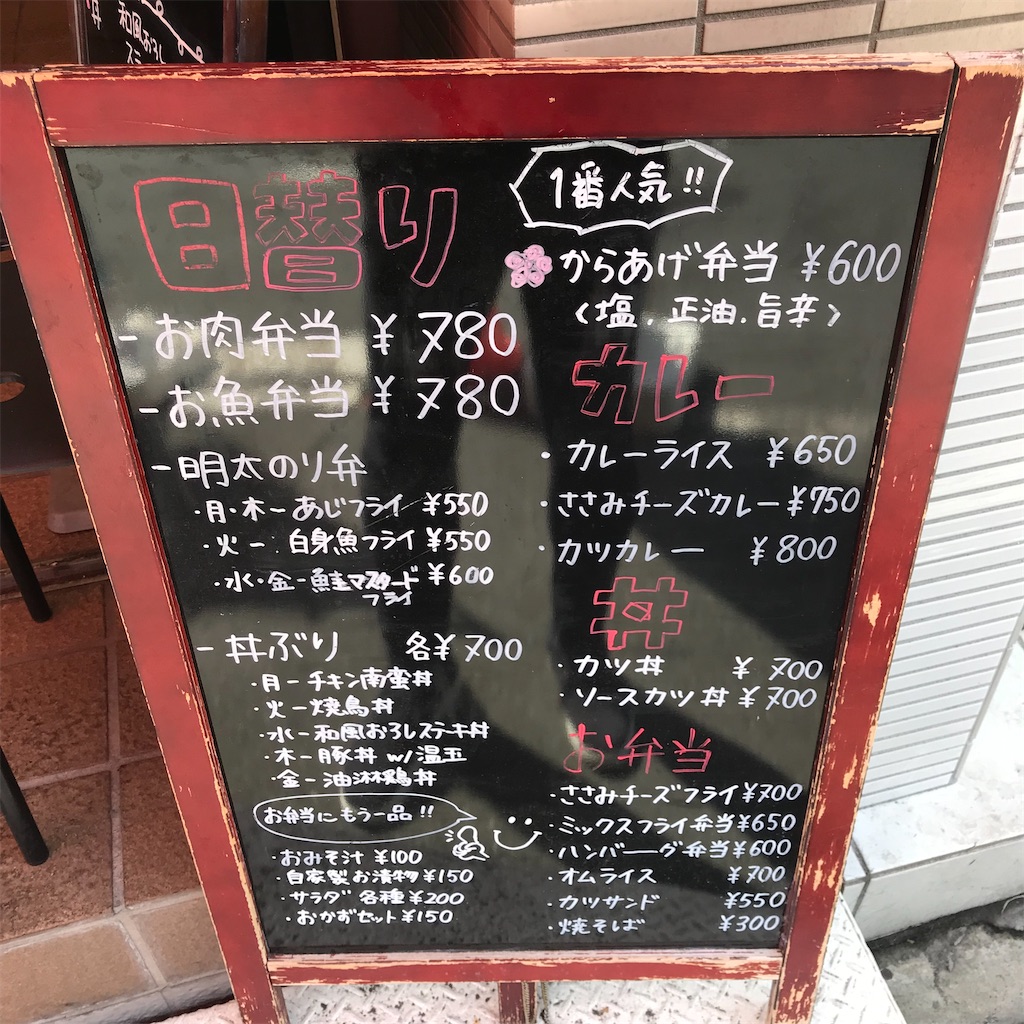 和風おろし
日替り
-お肉弁当 ¥780
-お魚弁当 ¥780
-明太のり弁
・月・木-あじフライ ¥550
・火- 白身魚フライ ¥550
・水・金-鮭マスタードフライ ¥600
-丼ぶり 各¥700
・月-チキン南蛮丼
・火-焼鳥丼
・水-和風おろしステキ丼
・木-豚丼 w/温玉
・金-油淋鶏丼
お弁当にもう一品!!
・おみそ汁 ¥100
・自家製お漬物 ¥150
・サラダ 各種 ¥200
・おかずセット ¥150
1番人気!!
からあげ弁当 ¥600
〈塩.正油.旨辛〉
カレー
・カレーライス ¥650
・ささみチーズカレー ¥750
・カツカレー ¥800
丼
・カツ丼 ¥700
・ソースカツ丼 ¥700
お弁当
・ささみチーズフライ ¥700
・ミックスフライ弁当 ¥650
・ハンバーグ弁当 ¥600
・オムライス ¥700
・カツサンド ¥550
・焼そば ¥300